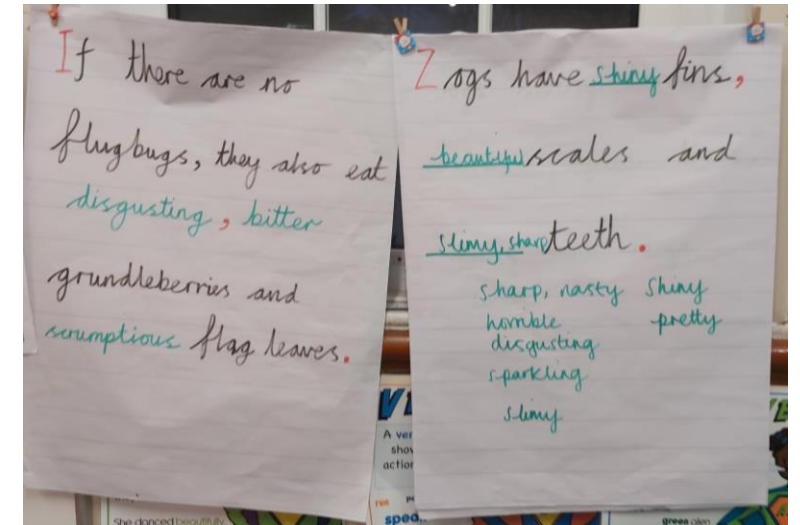 If there are no
flugbugs, they also eat
disgusting, bitter
grundleberries and
scrumptious flag leaves.
Zogs have shiny fins,
beautiful scales and
slimy, sharp teeth.
sharp, nasty shiny
horrible pretty
disgusting
sparkling
slimy
A ver
show
action
She danced beautifully
green alien